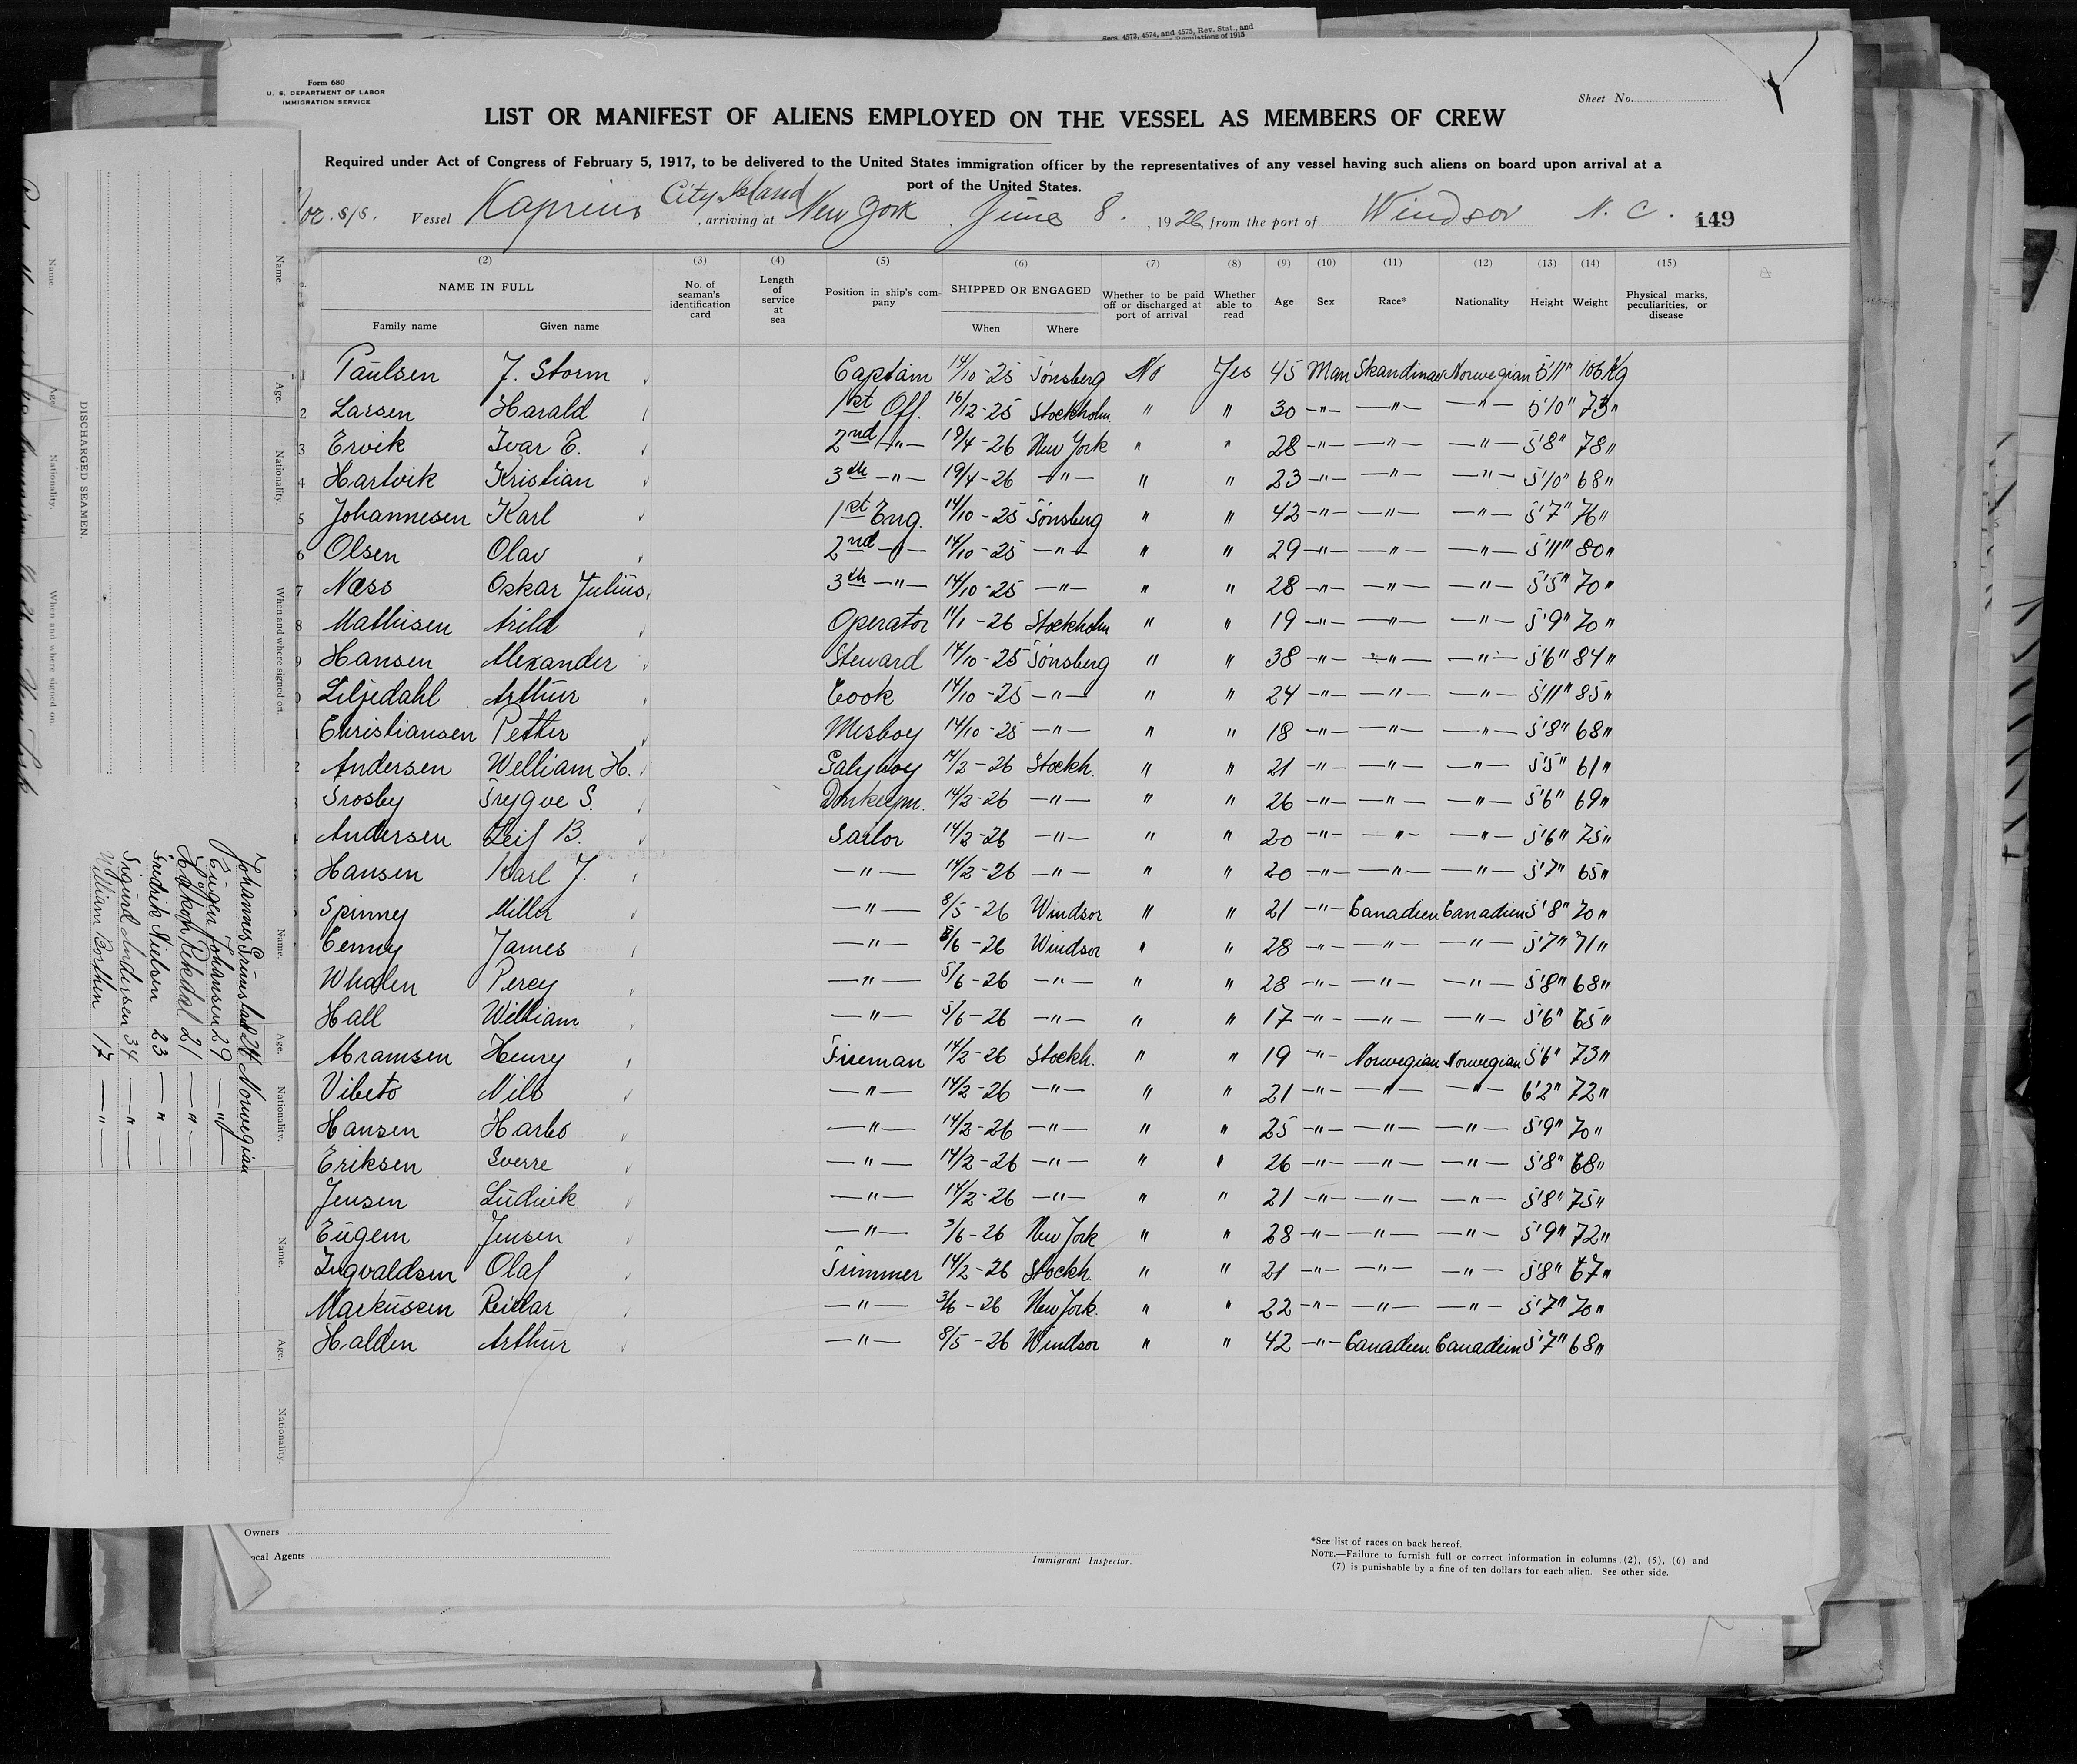 Secs. 4573, 4574, and 4575, Rev. Stat., and
Regulations of 1915
Form 680
U. S. DEPARTMENT OF LABOR
IMMIGRATION SERVICE
Sheet No.
LIST OR MANIFEST OF ALIENS EMPLOYED ON THE VESSEL AS MEMBERS OF CREW
Required under Act of Congress of February 5, 1917, to be delivered to the United States immigration officer by the representatives of any vessel having such aliens on board upon arrival at a
port of the United States.
Nor. s/s. Vessel Kaprino City Island, arriving at New York, June 8., 1926, from the port of Windsor N. C. 149
(2) (3) (4) (5) (6) (7) (8) (9) (10) (11) (12) (13) (14) (15)
NAME IN FULL No. of seaman's identification card Length of service at sea Position in ship's company SHIPPED OR ENGAGED Whether to be paid off or discharged at port of arrival Whether able to read Age Sex Race* Nationality Height Weight Physical marks, peculiarities, or disease
Family name Given name When Where
1 Paulsen J. Storm Captain 14/10-25 Tönsberg No Yes 45 Man Skandinav Norwegian 5'11" 106 Kg
2 Larsen Harald 1st Off. 16/12-25 Stockholm " " 30 -"- -"- -"- 5'10" 73"
3 Ervik Ivar E. 2nd -"- 19/4-26 New York " " 28 -"- -"- -"- 5'8" 78"
4 Hartvik Kristian 3th -"- 19/4-26 -"- " " 23 -"- -"- -"- 5'10" 68"
5 Johannesen Karl 1st Eng. 14/10-25 Tönsberg " " 42 -"- -"- -"- 5'7" 76"
6 Olsen Olav 2nd -"- 14/10-25 -"- " " 29 -"- -"- -"- 5'11" 80"
7 Næss Oskar Julius 3th -"- 14/10-25 -"- " " 28 -"- -"- -"- 5'5" 70"
8 Mathisen Arild Operator 11/1-26 Stockholm " " 19 -"- -"- -"- 5'9" 70"
9 Hansen Alexander Steward 14/10-25 Tönsberg " " 38 -"- -"- -"- 5'6" 84"
0 Liljedahl Arthur Cook 14/10-25 -"- " " 24 -"- -"- -"- 5'11" 85"
1 Christiansen Petter Mesboy 14/10-25 -"- " " 18 -"- -"- -"- 5'8" 68"
2 Andersen William H. Galyboy 14/2-26 Stockh. " " 21 -"- -"- -"- 5'5" 61"
3 Trosby Trygve S. Donkeym. 14/2-26 -"- " " 26 -"- -"- -"- 5'6" 69"
4 Andersen Leif B. Sailor 14/2-26 -"- " " 20 -"- -"- -"- 5'6" 75"
5 Hansen Karl J. -"- 14/2-26 -"- " " 20 -"- -"- -"- 5'7" 65"
Spinney Miller -"- 8/5-26 Windsor " " 21 -"- Canadien Canadien 5'8" 70"
Cenny James -"- 5/6-26 Windsor " " 28 -"- -"- -"- 5'7" 71"
Whalen Percy -"- 5/6-26 -"- " " 28 -"- -"- -"- 5'8" 68"
Hall William -"- 5/6-26 -"- " " 17 -"- -"- -"- 5'6" 65"
Abramsen Henry Fireman 14/2-26 Stockh. " " 19 -"- Norwegian Norwegian 5'6" 73"
Vibeto Nils -"- 14/2-26 -"- " " 21 -"- -"- -"- 6'2" 72"
Hansen Harbo -"- 14/2-26 -"- " " 25 -"- -"- -"- 5'9" 70"
Eriksen Sverre -"- 14/2-26 -"- " " 26 -"- -"- -"- 5'8" 68"
Jensen Ludvik -"- 14/2-26 -"- " " 21 -"- -"- -"- 5'8" 75"
Eugem Jensen -"- 3/6-26 New York " " 28 -"- -"- -"- 5'9" 72"
Ingvaldsen Olaf Trimmer 14/2-26 Stockh. " " 21 -"- -"- -"- 5'8" 67"
Markussen Reidar -"- 3/6-26 New York. " " 22 -"- -"- -"- 5'7" 70"
Halden Arthur -"- 8/5-26 Windsor " " 42 -"- Canadien Canadien 5'7" 68"
Owners
Local Agents
Immigrant Inspector.
*See list of races on back hereof.
NOTE.—Failure to furnish full or correct information in columns (2), (5), (6) and
(7) is punishable by a fine of ten dollars for each alien. See other side.
Name. Age. Nationality. When and where signed on.
DISCHARGED SEAMEN.
Name. Age. Nationality. When and where signed on.
Name. Age. Nationality.
Johannes Grimstad 24 Norwegian
Eugen Johansen 29 -"-
Haakon Rekdal 21 -"-
Fredrik Nielsen 23 -"-
Sigurd Andersen 34 -"-
William Borthen 17 -"-
Name. Age. Nationality.